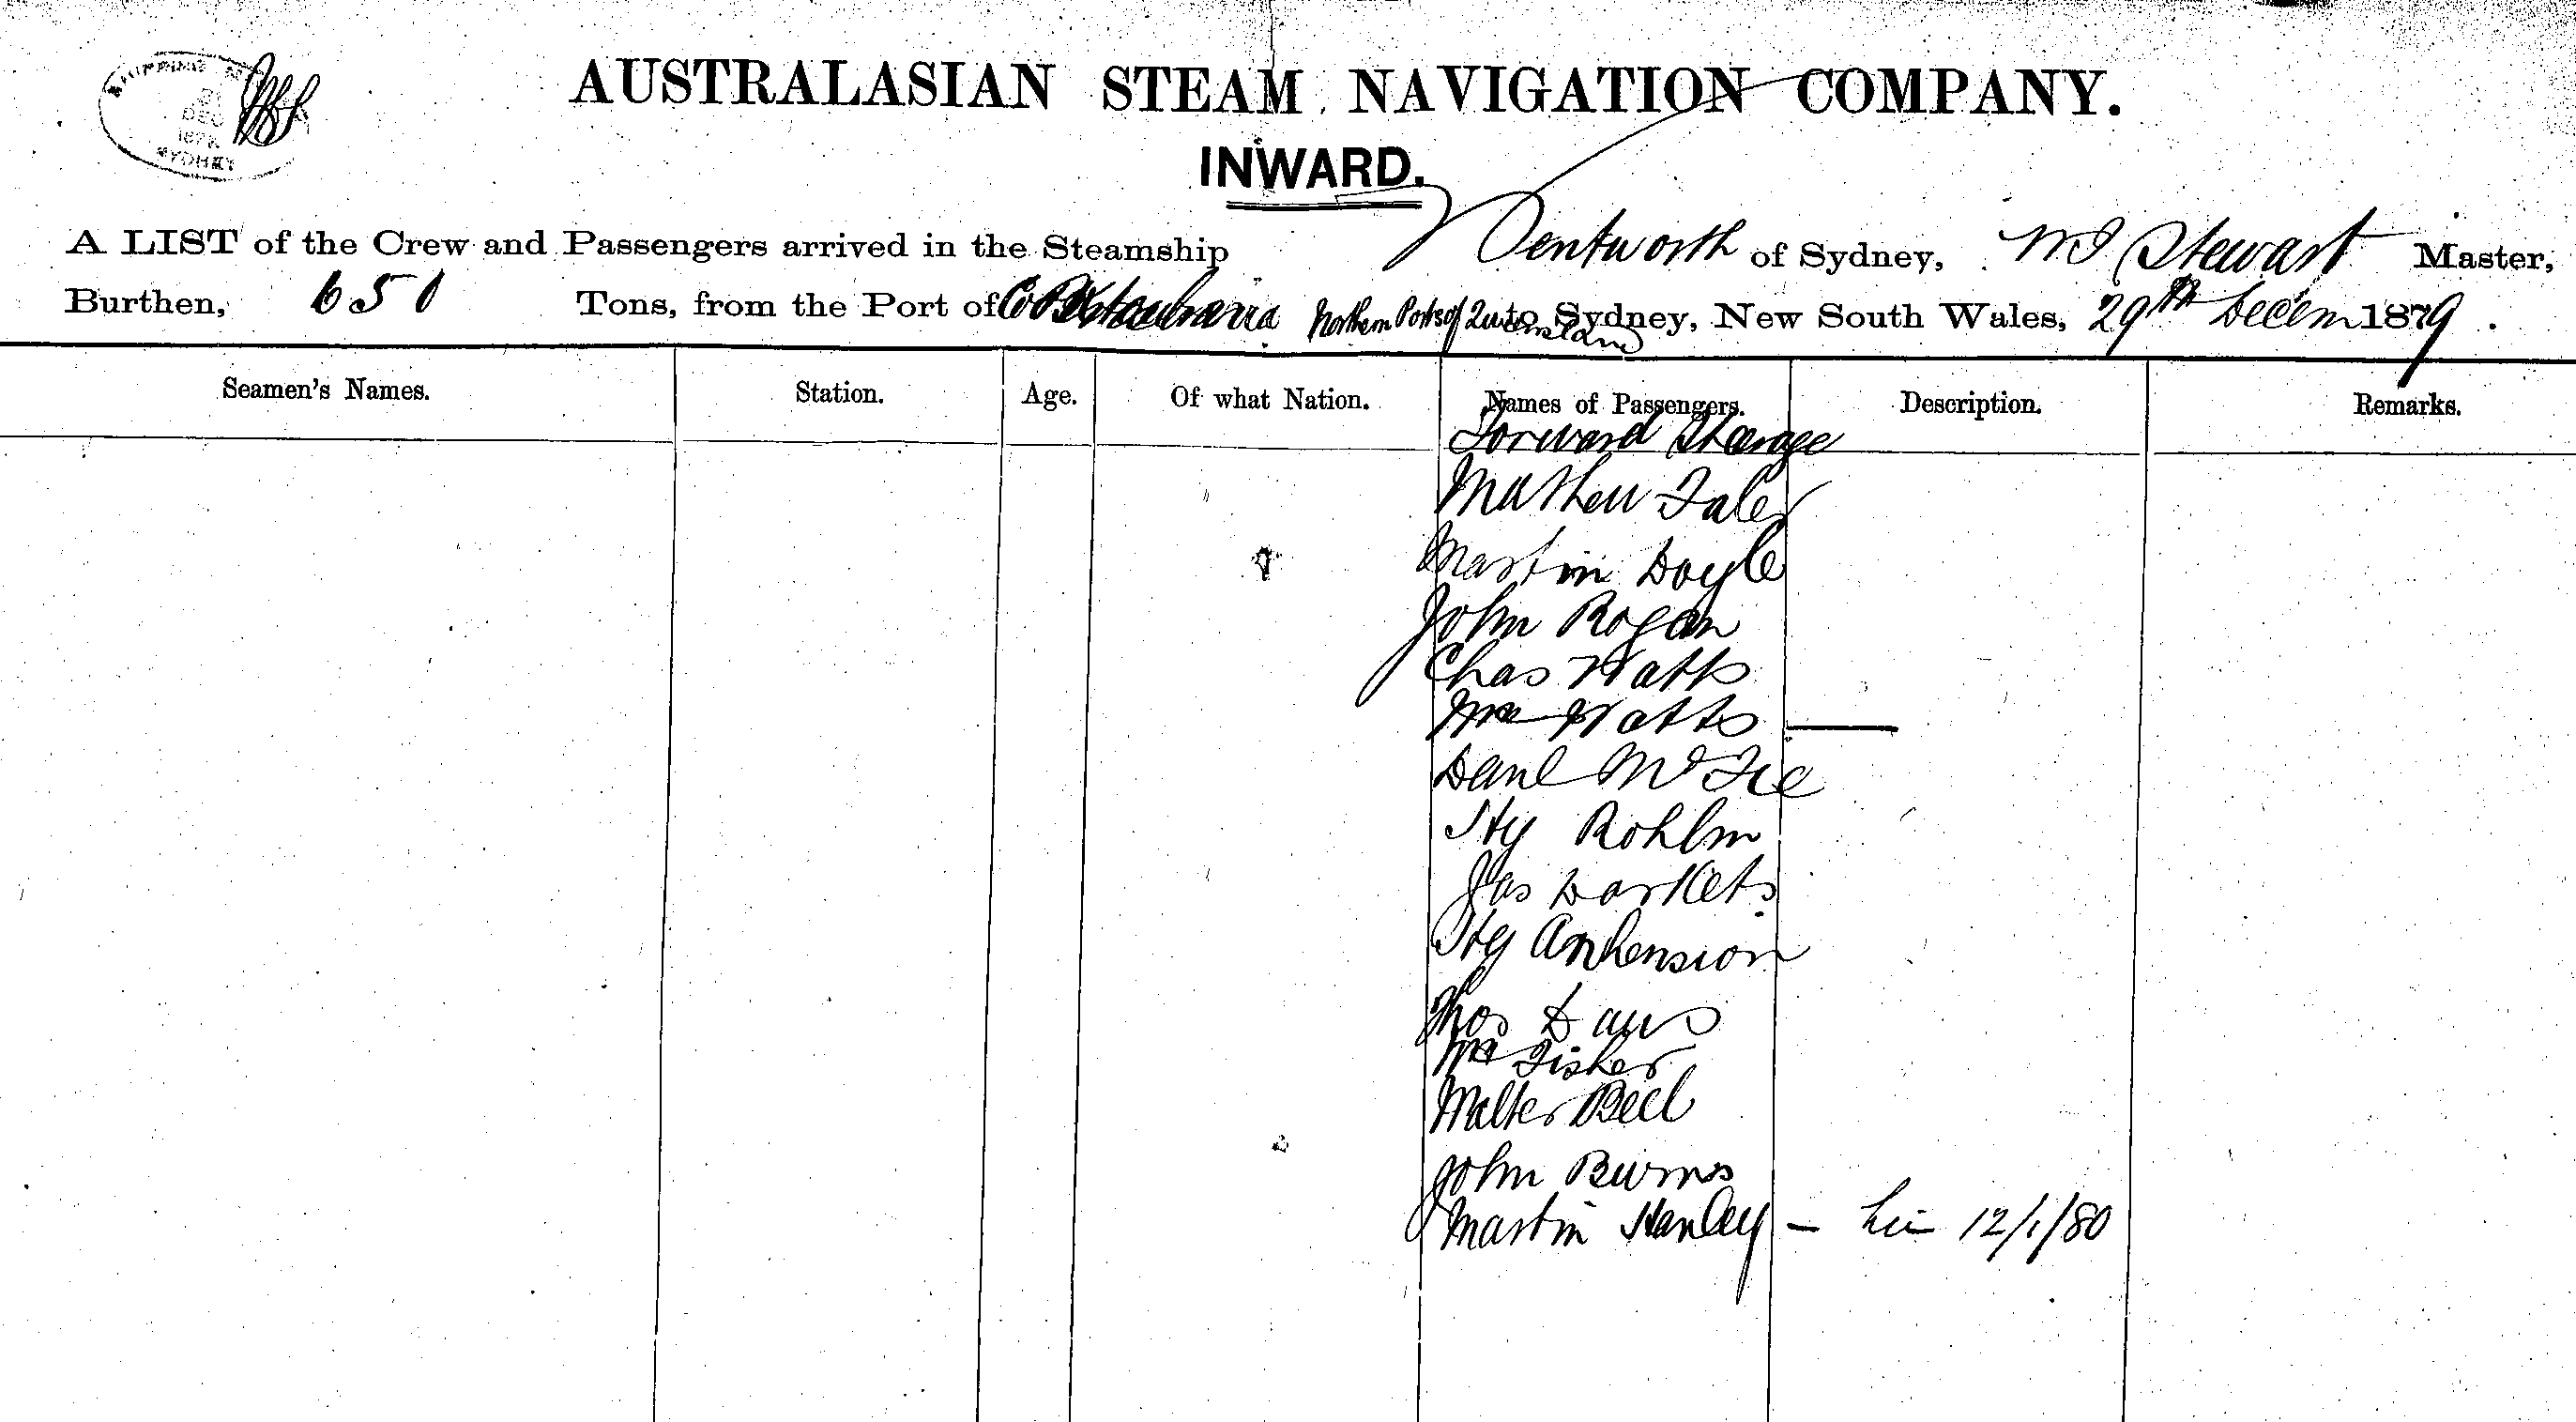 SHIPPING
DEC
187
SYDNEY
AUSTRALASIAN STEAM NAVIGATION COMPANY.
INWARD.
A LIST of the Crew and Passengers arrived in the Steamship Wentworth of Sydney, Stewart Master,
Burthen, 650 Tons, from the Port of Northern Ports of Queensland to Sydney, New South Wales, 29th Decem 1879.
Seamen's Names. Station. Age. Of what Nation. Names of Passengers. Description. Remarks.
Forward Steerage
Mathew Faley
Martin Doyle
John Rogan
Chas Watts
Mrs Watts —
Danl McFie
Hy Rohlm
Jas
Hy
Thos Davis
Mr Fisher
Walter Bell
John Burns
Martin Hanley — 12/1/80